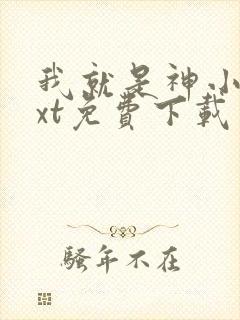 我就是神小
xt免費下載
騷年不在